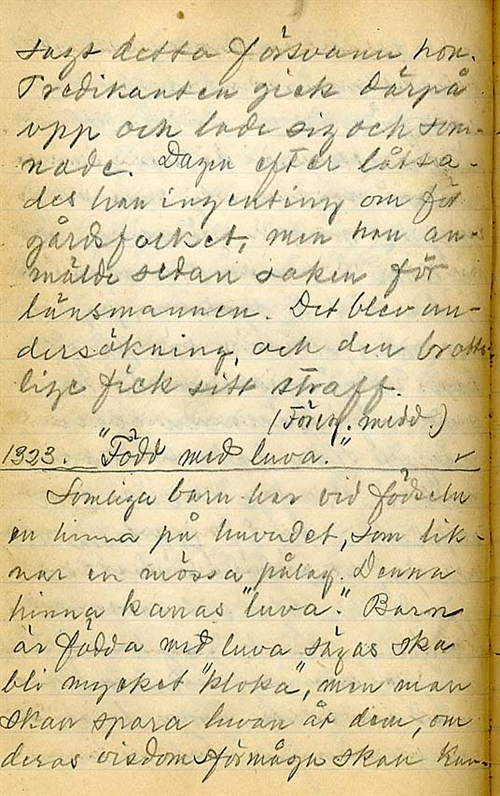 sagt detta försvann hon.
Predikanten gick därpå
upp och lade sig och som-
nade. Dagen efter låtsa-
des han ingenting om för
gårdsfolket, men han an-
mälde sedan saken för
länsmannen. Det blev un-
dersökning, och den brotts-
lige fick sitt straff.
(Föreg. medd.)
1323. "Född med luva."
Somliga barn har vid födseln
en hinna på huvudet, som lik-
nar en mössa pålag. Denna
hinna kallas "luva". Barn
är födda med luva sägas ska
bli mycket "kloka", men man
skall spara luvan åt dem, om
deras visdomsförmåga skall kun-